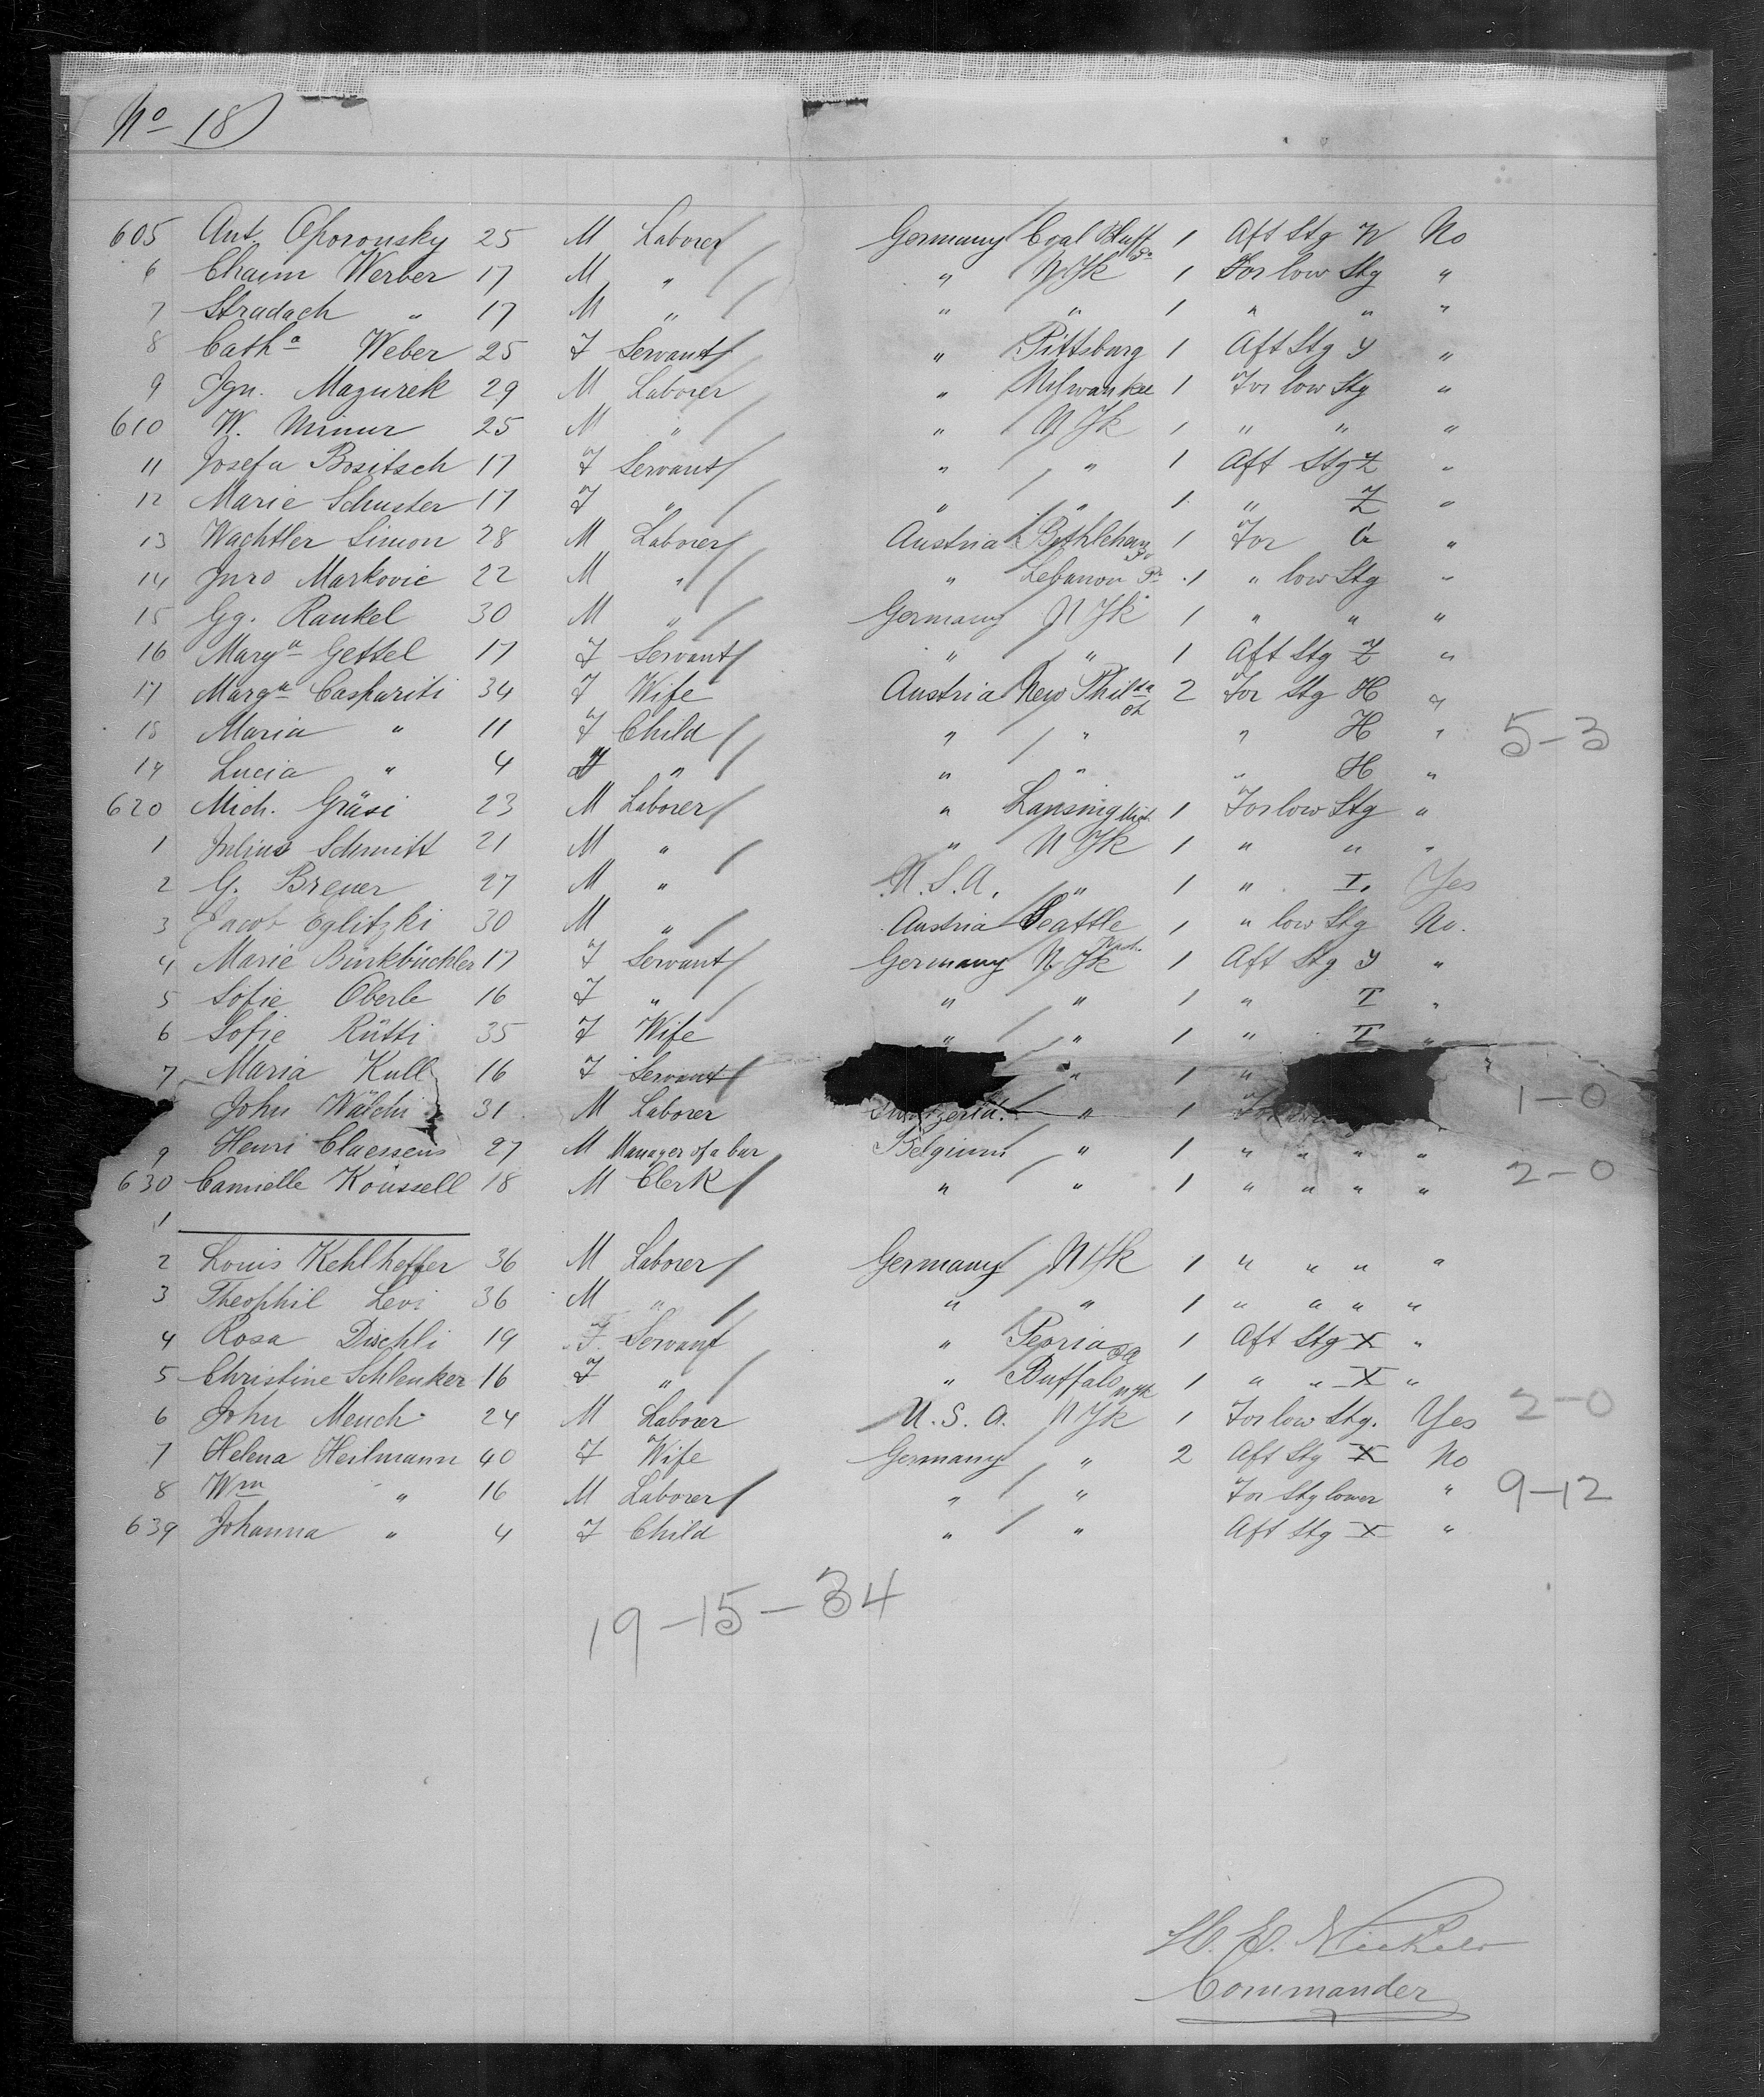 No 18
605 Ant. Oporonsky 25 M Laborer Germany Coal Bluff 1 Aft Stg W No
6 Chaim Werber 17 M " " N Yk 1 For low Stg "
7 Stradach " 17 M " " " 1 " " "
8 Cath a Weber 25 F Servant " Pittsburg 1 Aft Stg Y "
9 Ign. Mazurek 29 M Laborer " Milwaukee 1 For low Stg "
610 W. Minur 25 M " " N Yk 1 " " "
11 Josefa Bositsch 17 F Servant " " 1 Aft Stg Z "
12 Marie Schuster 17 F " " " 1 " Z "
13 Wachtler Simon 28 M Laborer Austria Bethlehem 1 For G "
14 Juro Markovic 22 M " " Lebanon Pa 1 " low Stg "
15 Gg. Rankel 30 M " Germany N Yk 1 " " "
16 Marg a Gettel 17 F Servant " " 1 Aft Stg Z "
17 Marg a Caspariti 34 F Wife Austria New Phil da Oh 2 For Stg H "
18 Maria " 11 F Child " " " H " 5-3
19 Lucia " 4 " " " " H "
620 Mich. Gräsi 23 M Laborer " Lansing Mich. 1 For low Stg "
1 Julius Schmitt 21 M " " N Yk 1 " " "
2 G. Breuer 27 M " U.S.A. " 1 " I. Yes
3 Jacob Eglitzki 30 M " Austria Seattle Wash. 1 " low Stg No.
4 Marie Binkbüchler 17 F Servant Germany N Yk 1 Aft Stg Y "
5 Sofie Oberle 16 F " " " 1 " T "
6 Sofie Rütti 35 F Wife " " 1 " T "
7 Maria Kull 16 F Servant " 1 "
John Wälchi 31 M Laborer " 1 1-0
9 Henri Claessens 27 M Manager of a bar Belgium " 1 " " " "
630 Camielle Koussell 18 M Clerk " " 1 " " " " 2-0
1
2 Louis Kehlhoffer 36 M Laborer Germany N Yk 1 " " " "
3 Theophil Levi 36 M " " " 1 " " " "
4 Rosa Dischli 19 F. Servant " Peoria 1 Aft Stg X "
5 Christine Schlenker 16 F " " Buffalo N Yk 1 " " X "
6 John Meuch 24 M Laborer U.S.A. N Yk 1 For low Stg. Yes 2-0
7 Helena Heilmann 40 F Wife Germany " 2 Aft Stg X No
8 Wm " 16 M Laborer " " For Stg lower " 9-12
639 Johanna " 4 F Child " " Aft Stg X "
19-15-34
Commander